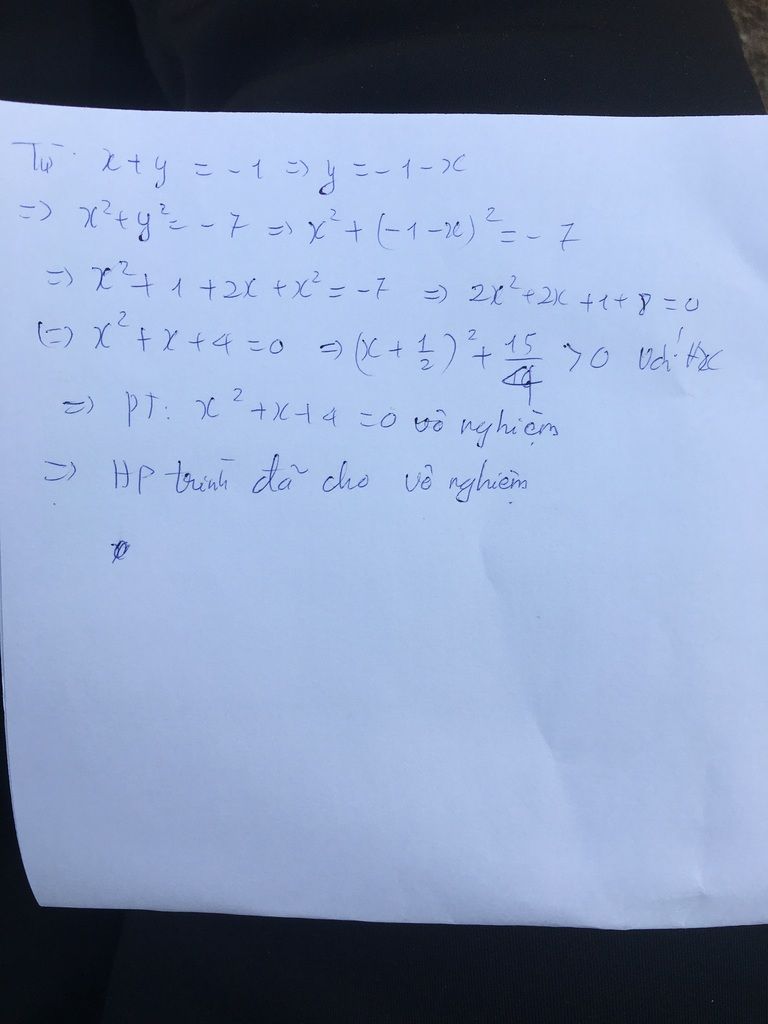 Từ x + y = - 1 => y = - 1 - x
=> x² + y² = - 7 => x² + (-1-x)² = - 7
=> x² + 1 + 2x + x² = -7 => 2x² + 2x + 1 + 8 = 0
(=) x² + x + 4 = 0 => (x + 1/2)² + 15/4 > 0 với ∀x
=> PT: x² + x + 4 = 0 vô nghiệm
=> HP trình đã cho vô nghiệm